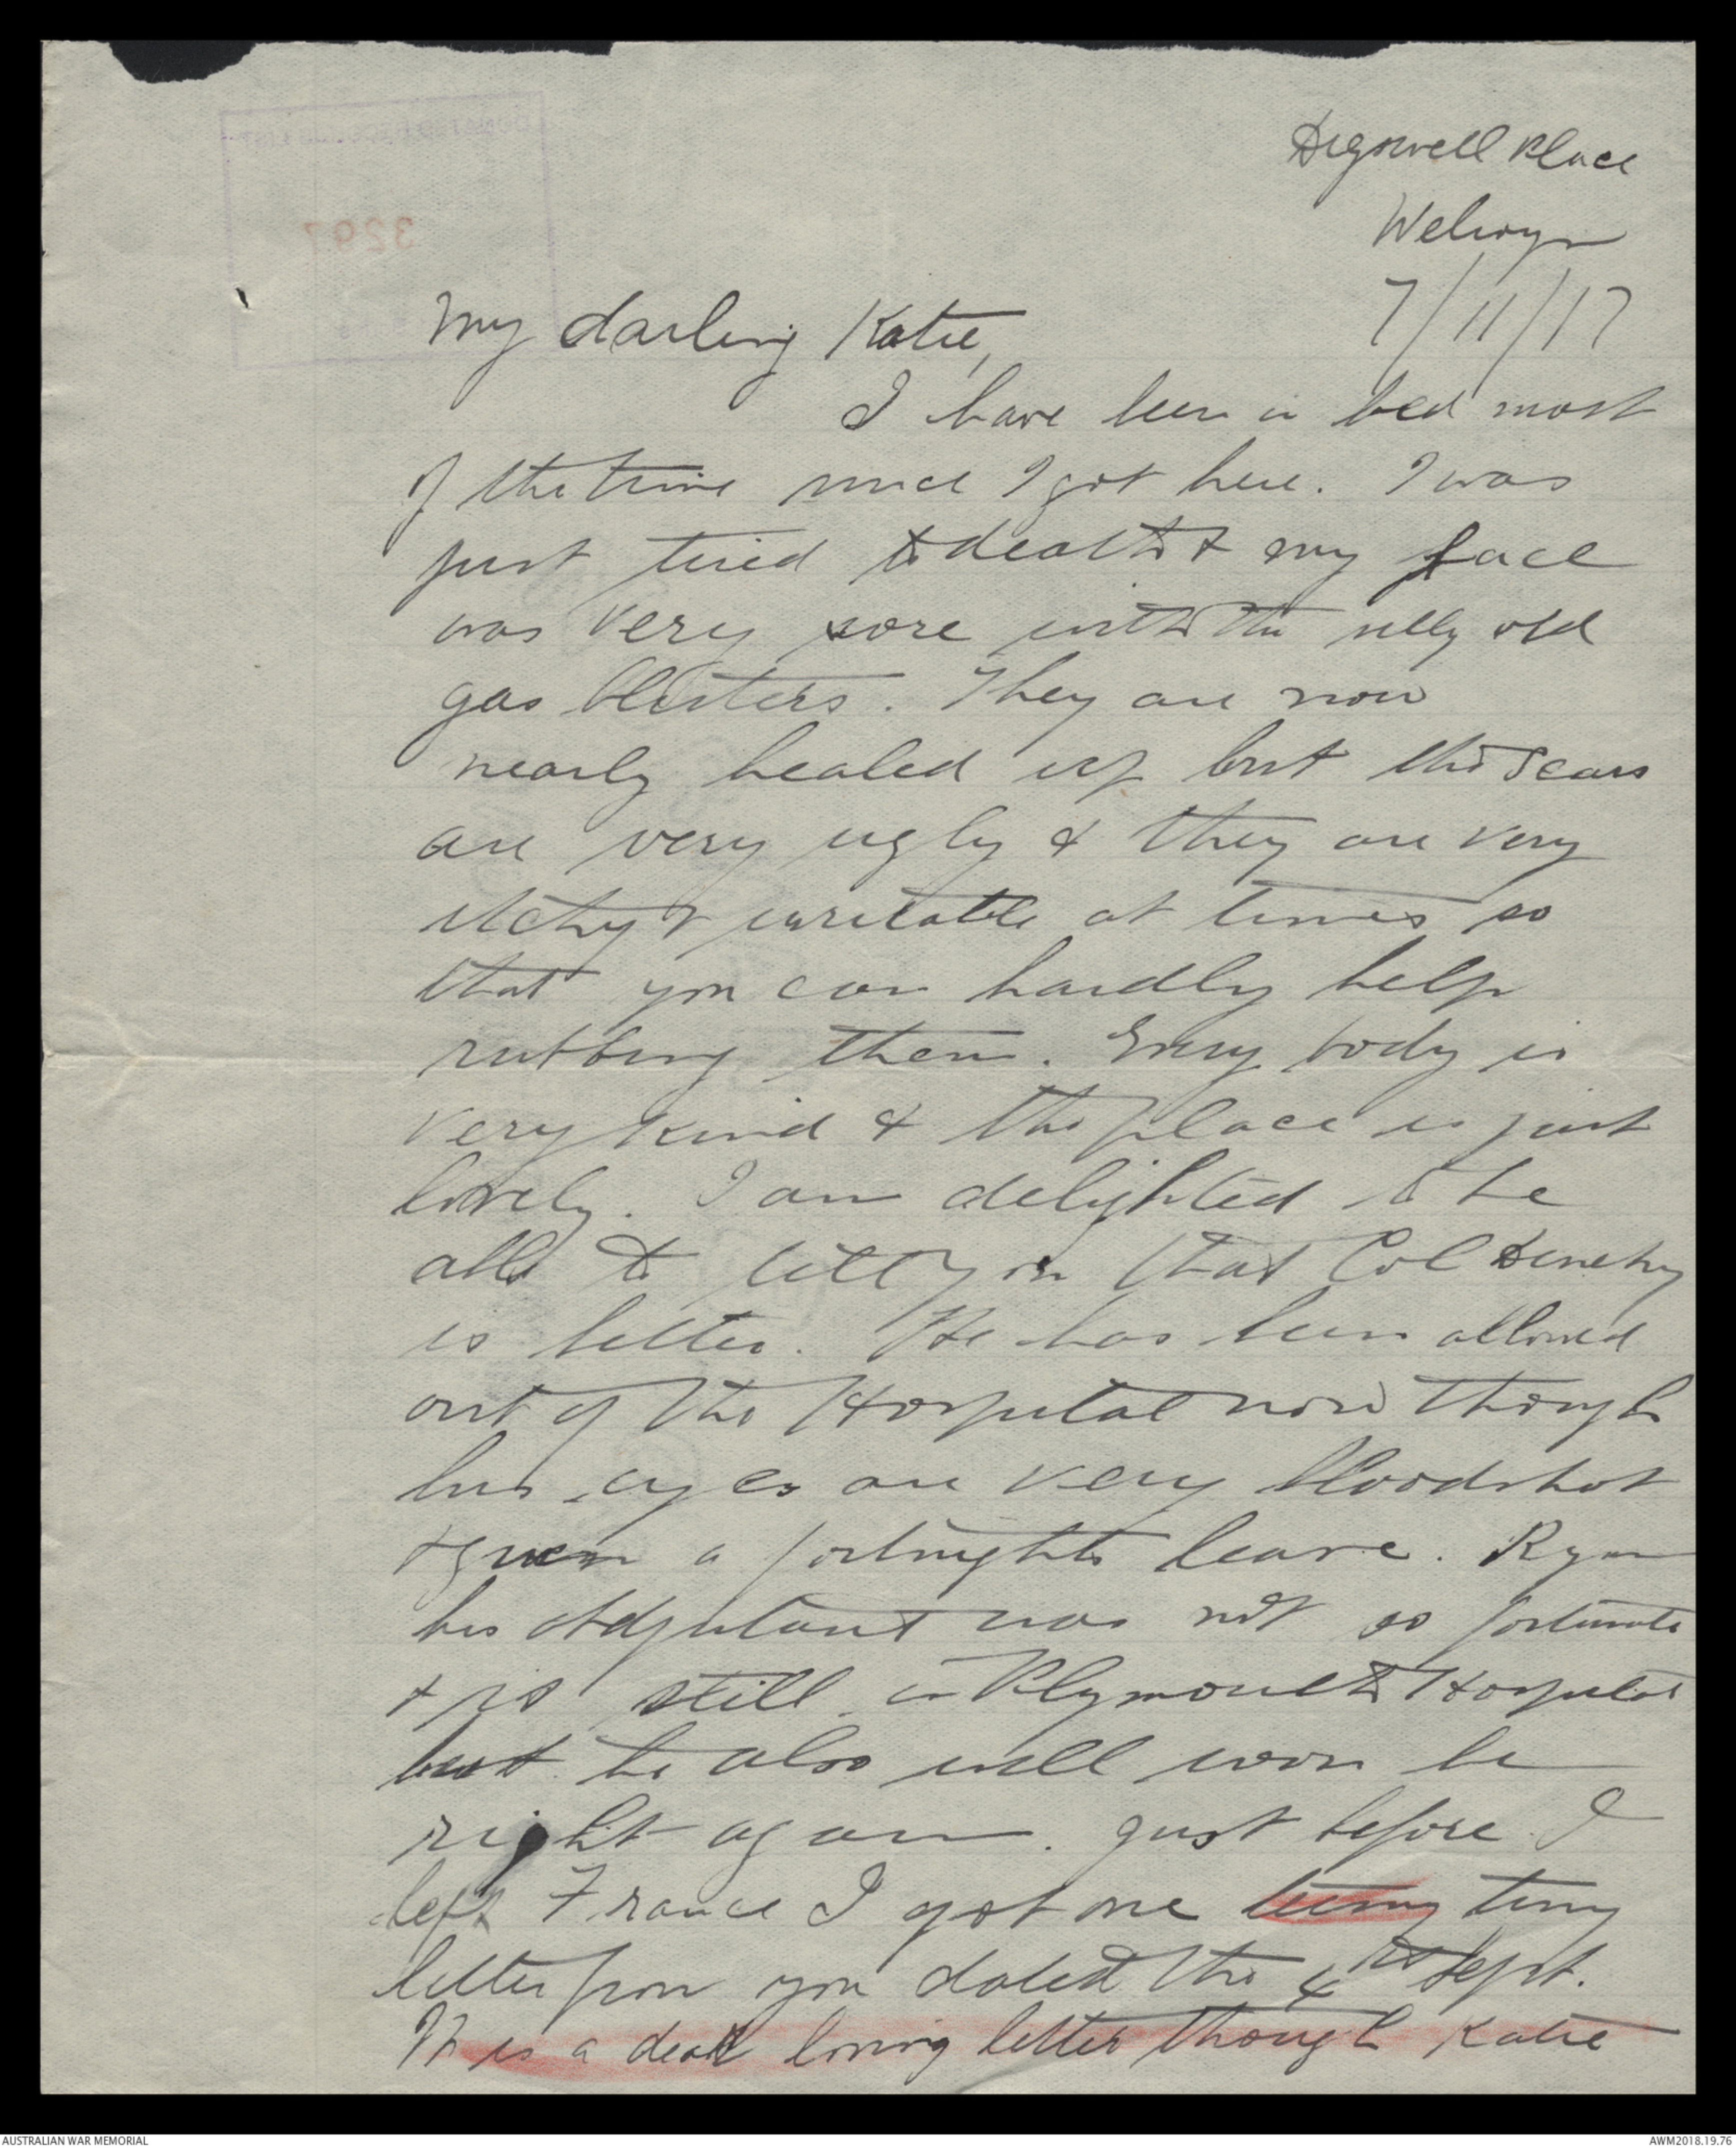 Digswell Place
Welwyn
7/11/17
My darling Katie,
I have been in bed most
of the time since I got here. I was
just tired to death & my face
was very sore with the silly old
gas blisters. They are now
nearly healed up but the scars
are very ugly & they are very
itchy & irritable at times so
that you can hardly help
rubbing them. Every body is
very kind & the place is just
lovely. I am delighted to be
able to tell you that Col Denehy
is better. He has been allowed
out of the Hospital now though
his eyes are very bloodshot
& given a fortnights leave. Ryan
his Adjutant was not so fortunate
& is still in Plymouth Hospital
but he also will soon be
right again. Just before I
left France I got one teeny tiny
letter from you dated the 4th Sept.
It is a dear loving letter though Katie
3297
AUSTRALIAN WAR MEMORIAL
AWM2018.19.76